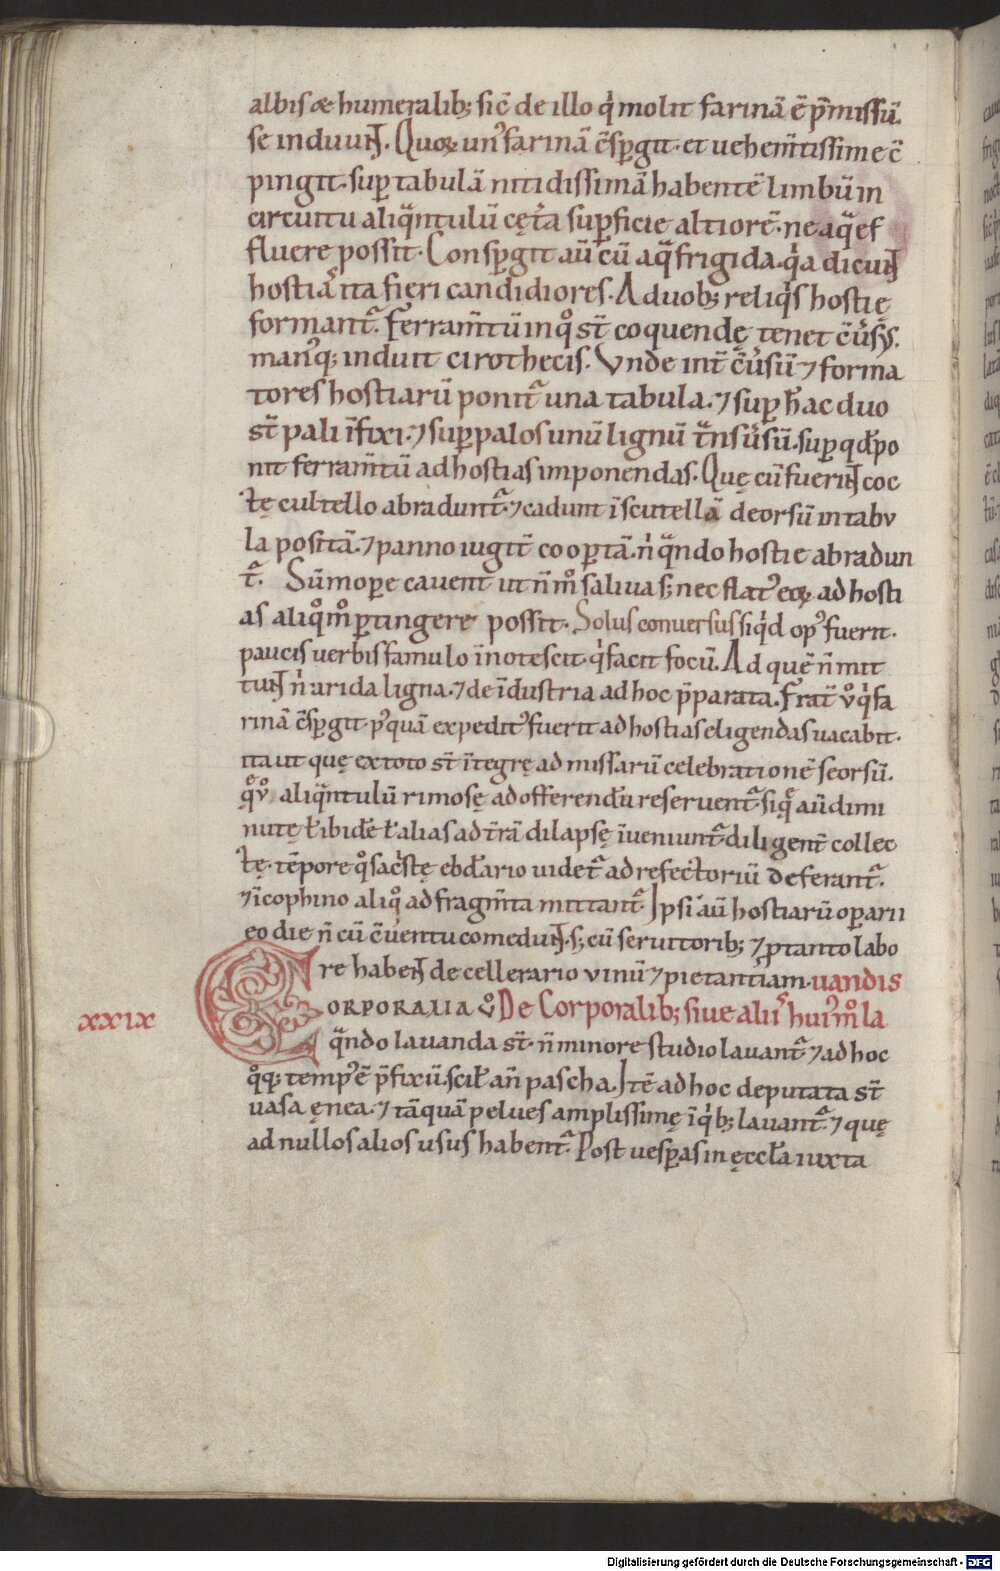 albis æ humeralib; sic̄ de illo qͥ molit farinā ē p̄missū.
se induuNT. Quoꝝ un᾽ farinā c̄sꝑgit. et uehem̄tissime c̄
pingit. suꝑ tabulā nitidissimā habentē limbū in
circuitu aliqᷓntulū cęt̄a suꝑficie altiorē. ne aqᷓ ef
fluere possit. Consꝑgit aū cū aqᷓ frigida. qͥa dicuNT
hostiā ita fieri candidiores. A duob; reliqͥs hostię
formantᷣ. Ferram̄tū in qͦ st̄ coquendę tenet c̄uͥsꝰ.
manꝰq; induit cirothecis. Vnde int̄ c̄uͥsū ⁊ forma
tores hostiarū ponitᷣ una tabula. ⁊ suꝑ hac duo
st̄ pali īfixi. ⁊ suꝑ palos unū lignū tᷓnsuͥsū. suꝑ qđ po
nit ferram̄tū ad hostias imponendas. Quę cū fueriNT coc
tę cultello abraduntᷣ. ⁊ cadunt ī scutellā deorsū in tabu
la positā. ⁊ panno iugit̄ cooꝑtā. nͥ qᷓndo hostie abradun
tᷣ. Sūmoꝑe cauent ut n̄mͦ saliua s; nec flatꝰ eoꝝ ad hosti
as aliqͦmͦ ꝑtingere possit. Solus conuersus siqͥd opꝰ fuerit.
paucis uerbis famulo īnotescit. qͥ facit focū. Ad quē n̄ mit
tuNT nͥ arida ligna. ⁊ de īdustria ad hoc p̄parata. Frat̄ ů qͥ fa
rinā c̄sꝑgit pꝰquā expeditꝰ fuerit ad hostias eligendas uacabit.
ita ut quę ex toto st̄ ītegrę ad missarū celebrationē seorsū.
qᷓ ů aliqᷓntulū rimosę ad offerendū reseruentᷣ. siqᷓ aū dimi
nutę ł ibidē ł alias ad t̄rā dilapsę īueniuntᷣ. diligent̄ collec
tę. tēpore qͦ sacͥstę ebđario uidetᷣ ad refectoriū deferantᷣ.
⁊ ī cophino aliqͦ ad fragm̄ta mittantᷣ. Ipsi aū hostiarū oꝑarii
eo die n̄ cū c̄uentu comeduNT. s; cū seruitorib; ⁊ ꝑ tanto labo
re habeNT de cellerario vinū ⁊ pietantiam. uandis
xxix CORPORALIA ů De Corporalib; siue aliiͥ huiꝰmͦ la
qᷓndo lauanda st̄. n̄ minore studio lauantᷣ. ⁊ ad hoc
qͦq; tempꝰ ē p̄fixū. scił an̄ pascha. Itē ad hoc deputata st̄
uasa ęnea. ⁊ tāquā pelues amplissimę ī qͥb; lauantᷣ. ⁊ quę
ad nullos alios usus habentᷣ. Post uesꝑas in ęccła iuxta
Digitalisierung gefördert durch die Deutsche Forschungsgemeinschaft - DFG